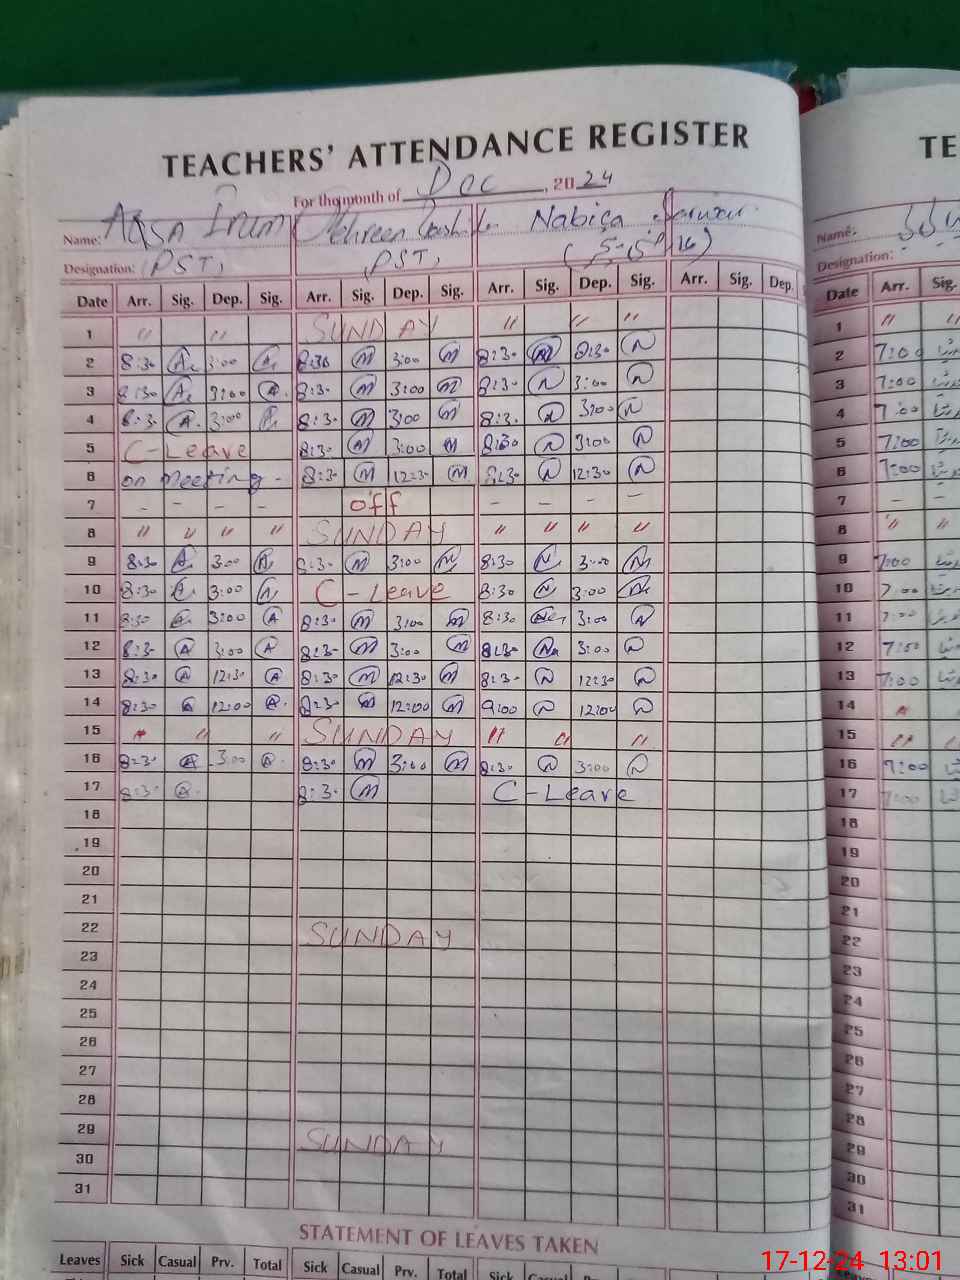 TEACHERS' ATTENDANCE REGISTER
TE
For the month of Dec, 2024
Name: Aqsa Irum Mehreen Nabiqa
Name:
Designation: PST, PST,
Designation:
Date Arr. Sig. Dep. Sig. Arr. Sig. Dep. Sig. Arr. Sig. Dep. Sig. Arr. Sig. Dep. Date Arr. Sig.
1 " " SUNDAY " " " 1 " "
2 8:30 A 3:00 A 8:30 M 3:00 M 8:30 N 2:30 N 2 7:00
3 8:30 A 3:00 A. 8:30 M 3:00 M 8:30 N 3:00 N 3 7:00
4 8:30 A. 3:00 A 8:30 M 3:00 M 8:30 N 3:00 N 4 7:00
5 C-Leave 8:30 M 3:00 M 8:30 N 3:00 N 5 7:00
6 on Meeting - 8:30 M 12:30 M 8:30 N 12:30 N 6 7:00
7 - - - - off - - - - 7 - -
8 " " " " SUNDAY " " " " 8 " "
9 8:30 A 3:00 A 8:30 M 3:00 M 8:30 N 3:00 N 9 7:00
10 8:30 A 3:00 A C-Leave 8:30 N 3:00 N 10 7:00
11 8:30 A 3:00 A 8:30 M 3:00 M 8:30 3:00 N 11 7:00
12 8:30 A 3:00 A 8:30 M 3:00 M 8:30 N 3:00 N 12 7:00
13 8:30 A 12:30 A 8:30 M 12:30 M 8:30 N 12:30 N 13 7:00
14 8:30 A 12:00 A. 8:30 M 12:00 M 9:00 N 12:00 N 14
15 " " " SUNDAY " " " 15 " "
16 8:30 A 3:00 A. 8:30 M 3:00 M 8:30 N 3:00 N 16 7:00
17 8:30 A. 8:30 M C-Leave 17 7:00
18 18
19 19
20 20
21 21
22 SUNDAY 22
23 23
24 24
25 25
26 26
27 27
28 28
29 SUNDAY 29
30 30
31 31
STATEMENT OF LEAVES TAKEN
Leaves Sick Casual Prv. Total Sick Casual Prv. Total Sick Casual Prv.
17-12-24 13:01